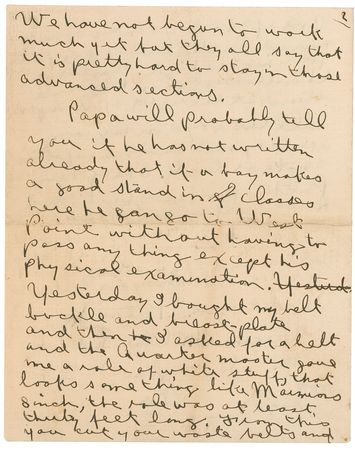 2
We have not begun to work
much yet but they all say that
it is pretty hard to stay in those
advanced sections.
Papa will probably tell
you if he has not written
already that if a boy makes
a good stand in classes
here he can go to West
Point without having to
pass any thing except his
physical examination. Yesterd
Yesterday I bought my belt
buckle and breast-plate
and then I asked for a belt
and the Quarter master gave
me a role of white stuff that
looks something like
inch, the role was at least
thirty feet long. From this
you cut your waste belts and